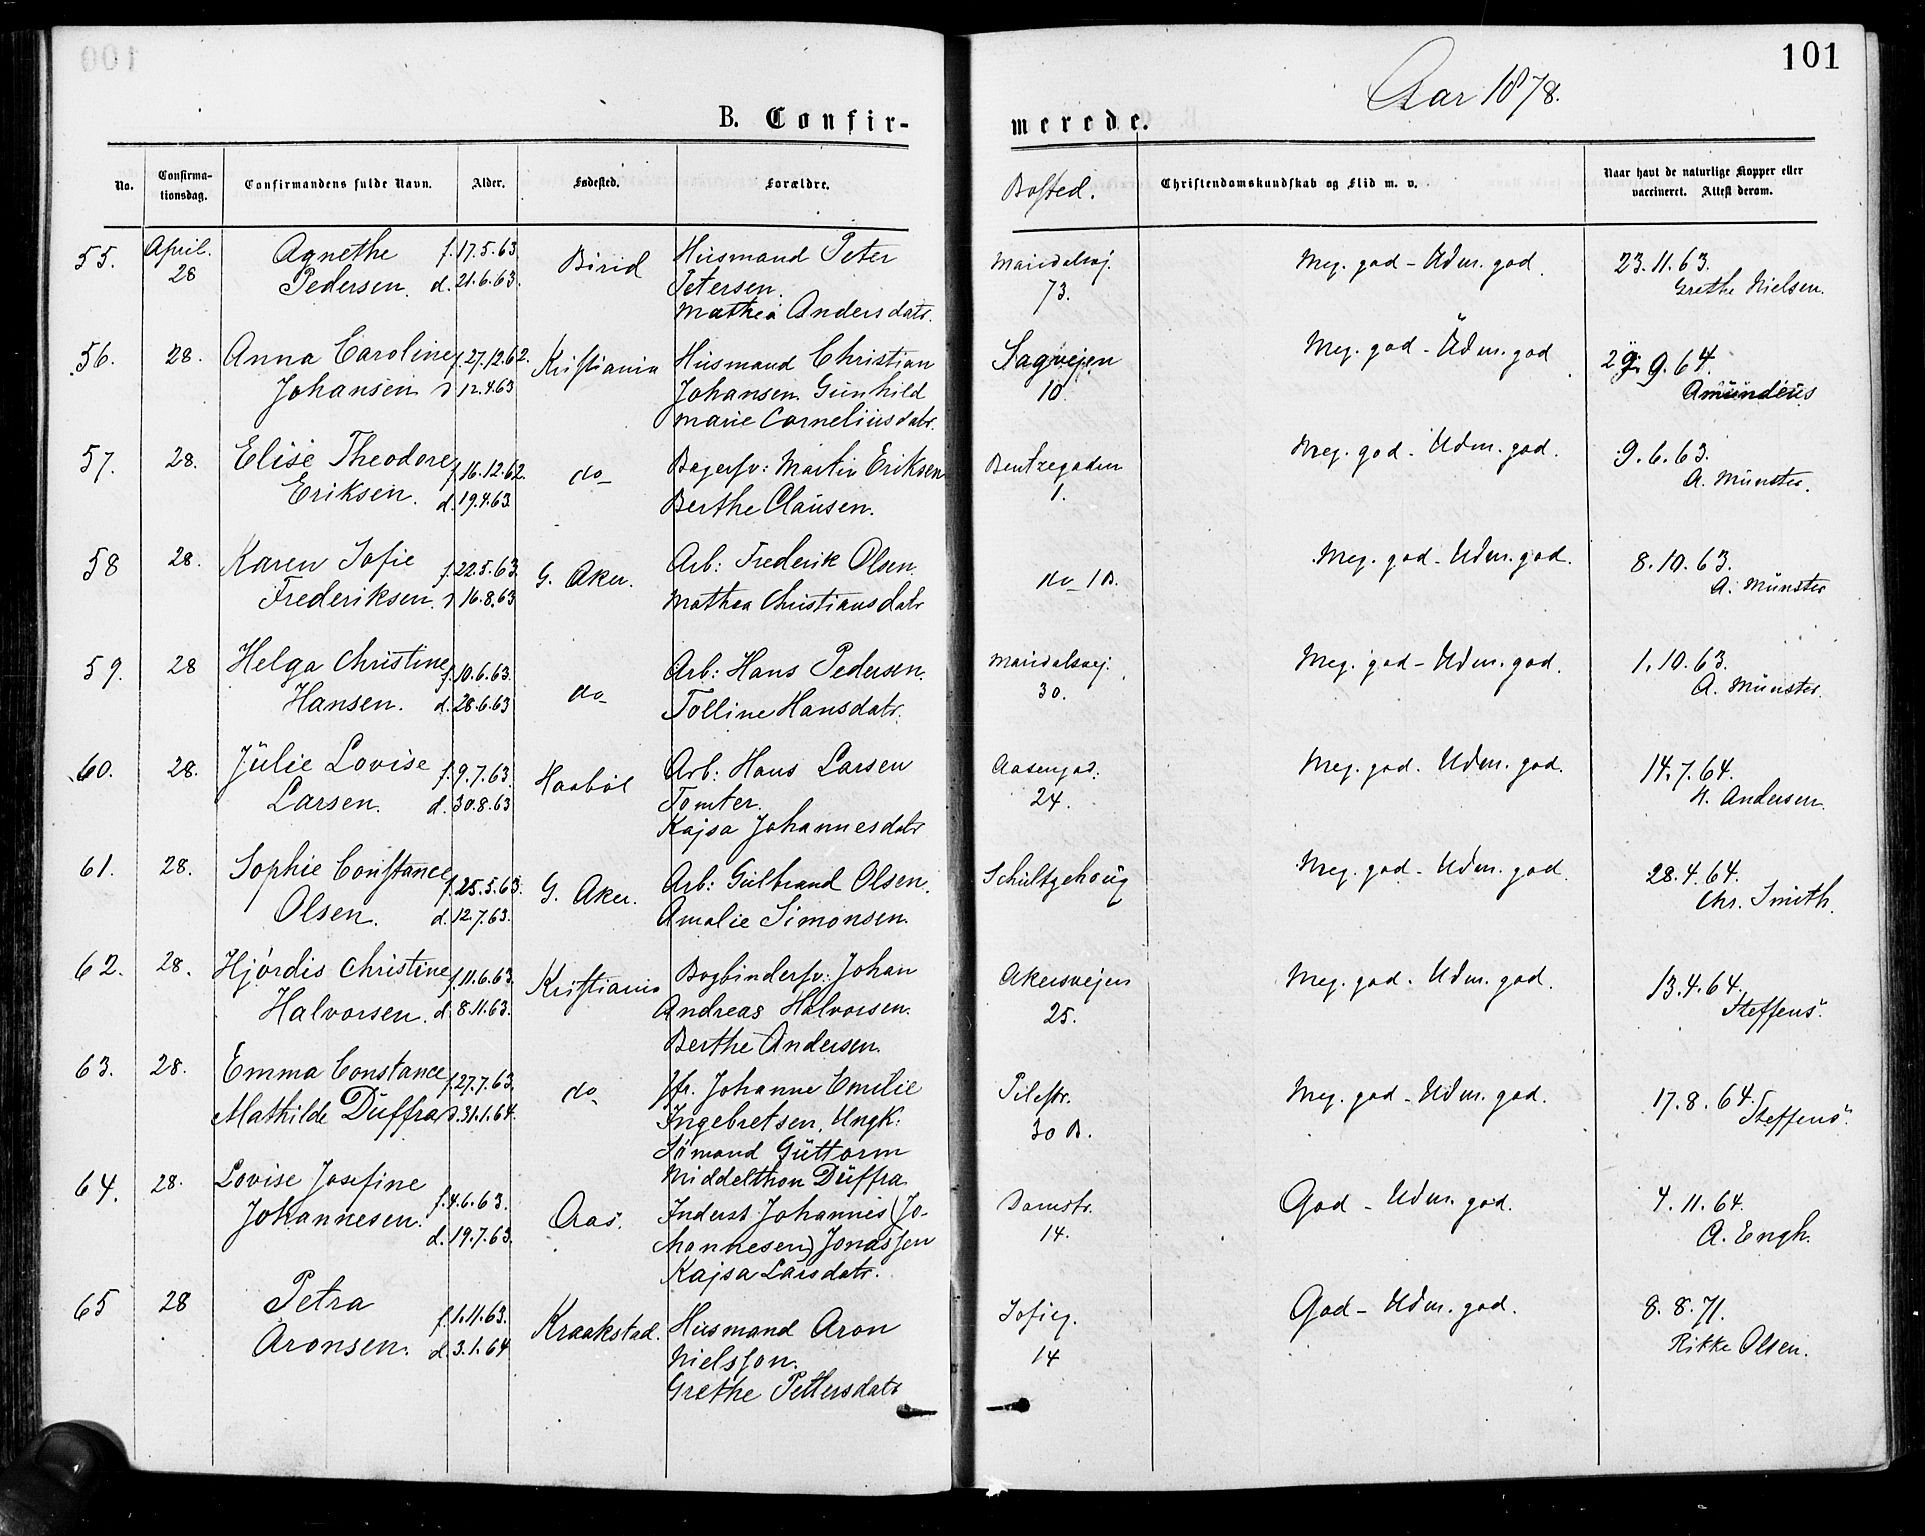 101
Aar 1878.
B. Confir-
merede.
No.
Confirma-
tionsdag.
Confirmandens fulde Navn.
Alder.
Fødested.
Forældre.
Bosted.
Christendomskundskab og Flid m. v.
Naar havt de naturlige Kopper eller
vaccineret. Attest derom.
55. April. Agnethe f. 17.5.63. Birid Husmand Peter Maridalsvj. Meg. god - Udm. god. 23.11.63.
28 Pedersen. d. 21.6.63. Petersen. 73. Grethe Nielsen.
Mathea Andersdatr.
56. 28. Anna Caroline f. 27.12.62. Kristiania Husmand Christian Sagvejen Meg. god - Udm. god 29. 9. 64.
Johansen d 12.4.63 Johansen. Gunhild 10. Amündeus
Marie Corneliusdatr.
57. 28. Elise Theodore f. 16.12.62. do Bagersv: Martin Eriksen Bentzegaden Meg. god - Udm. god. 9.6.63.
Eriksen. d. 19.4.63. Berthe Clausen. 1. A. Münster.
58 28. Karen Sofie f. 22.5.63. G. Aker. Arb: Frederik Olsen. do 1B. Meg. god - Udm. god. 8.10.63.
Frederiksen. d 16.8.63 Mathea Christiansdatr A. Münster
59. 28 Helga Christine f. 10.6.63. do Arb: Hans Pedersen. Maridalsvej. Meg. god - Udm. god. 1.10.63.
Hansen. d. 28.6.63 Tolline Hansdatr. 30. A. Münster.
60. 28. Julie Lovise f. 9.7.63. Haabøl Arb: Hans Larsen Aasengad. Meg. god. Udm. god. 14.7.64.
Larsen. d. 30.8.63 Tomter. 24. H. Andersen.
Kajsa Johannesdatr
61. 28. Sophie Constance f. 25.5.63. G. Aker. Arb: Gulbrand Olsen. Schultzehoug Meg. god - Udm. god. 28.4.64.
Olsen. d. 12.7.63. Amalie Simonsen. Chr. Smith.
62. 28. Hjördis Christine f. 11.6.63. Kristiania Bogbindersv: Johan Akersvejen Meg. god. Udm. god. 13.4.64.
Halvorsen. d. 8.11.63. Andreas Halvorsen. 25. Steffens.
Berthe Andersen.
63. 28. Emma Constance f. 27.7.63. do Jfr. Johanne Emilie Pilestr. Meg. god - Udm. god. 17.8.64.
Mathilde Düffra d. 31.1.64. Ingebretsen, Ungk: 30 B. Steffens.
Sömand Güttorm
Middelthon Düffra
64. 28. Lovise Josefine f. 4.6.63. Aas. Inderst Johannes (Jo- Damstr. God - Udm. god. 4.11.64.
Johannesen. d. 19.7.63. hannesen) Jonassen 14. A. Engh.
Kajsa Larsdatr.
65 28 Petra f. 1.11.63. Kraakstad. Husmand Aron Sofieg. God - Udm. god. 8.8.71.
Aronsen. d. 3.1.64 Nielsson. 14 Rikke Olsen.
Grethe Pettersdatr